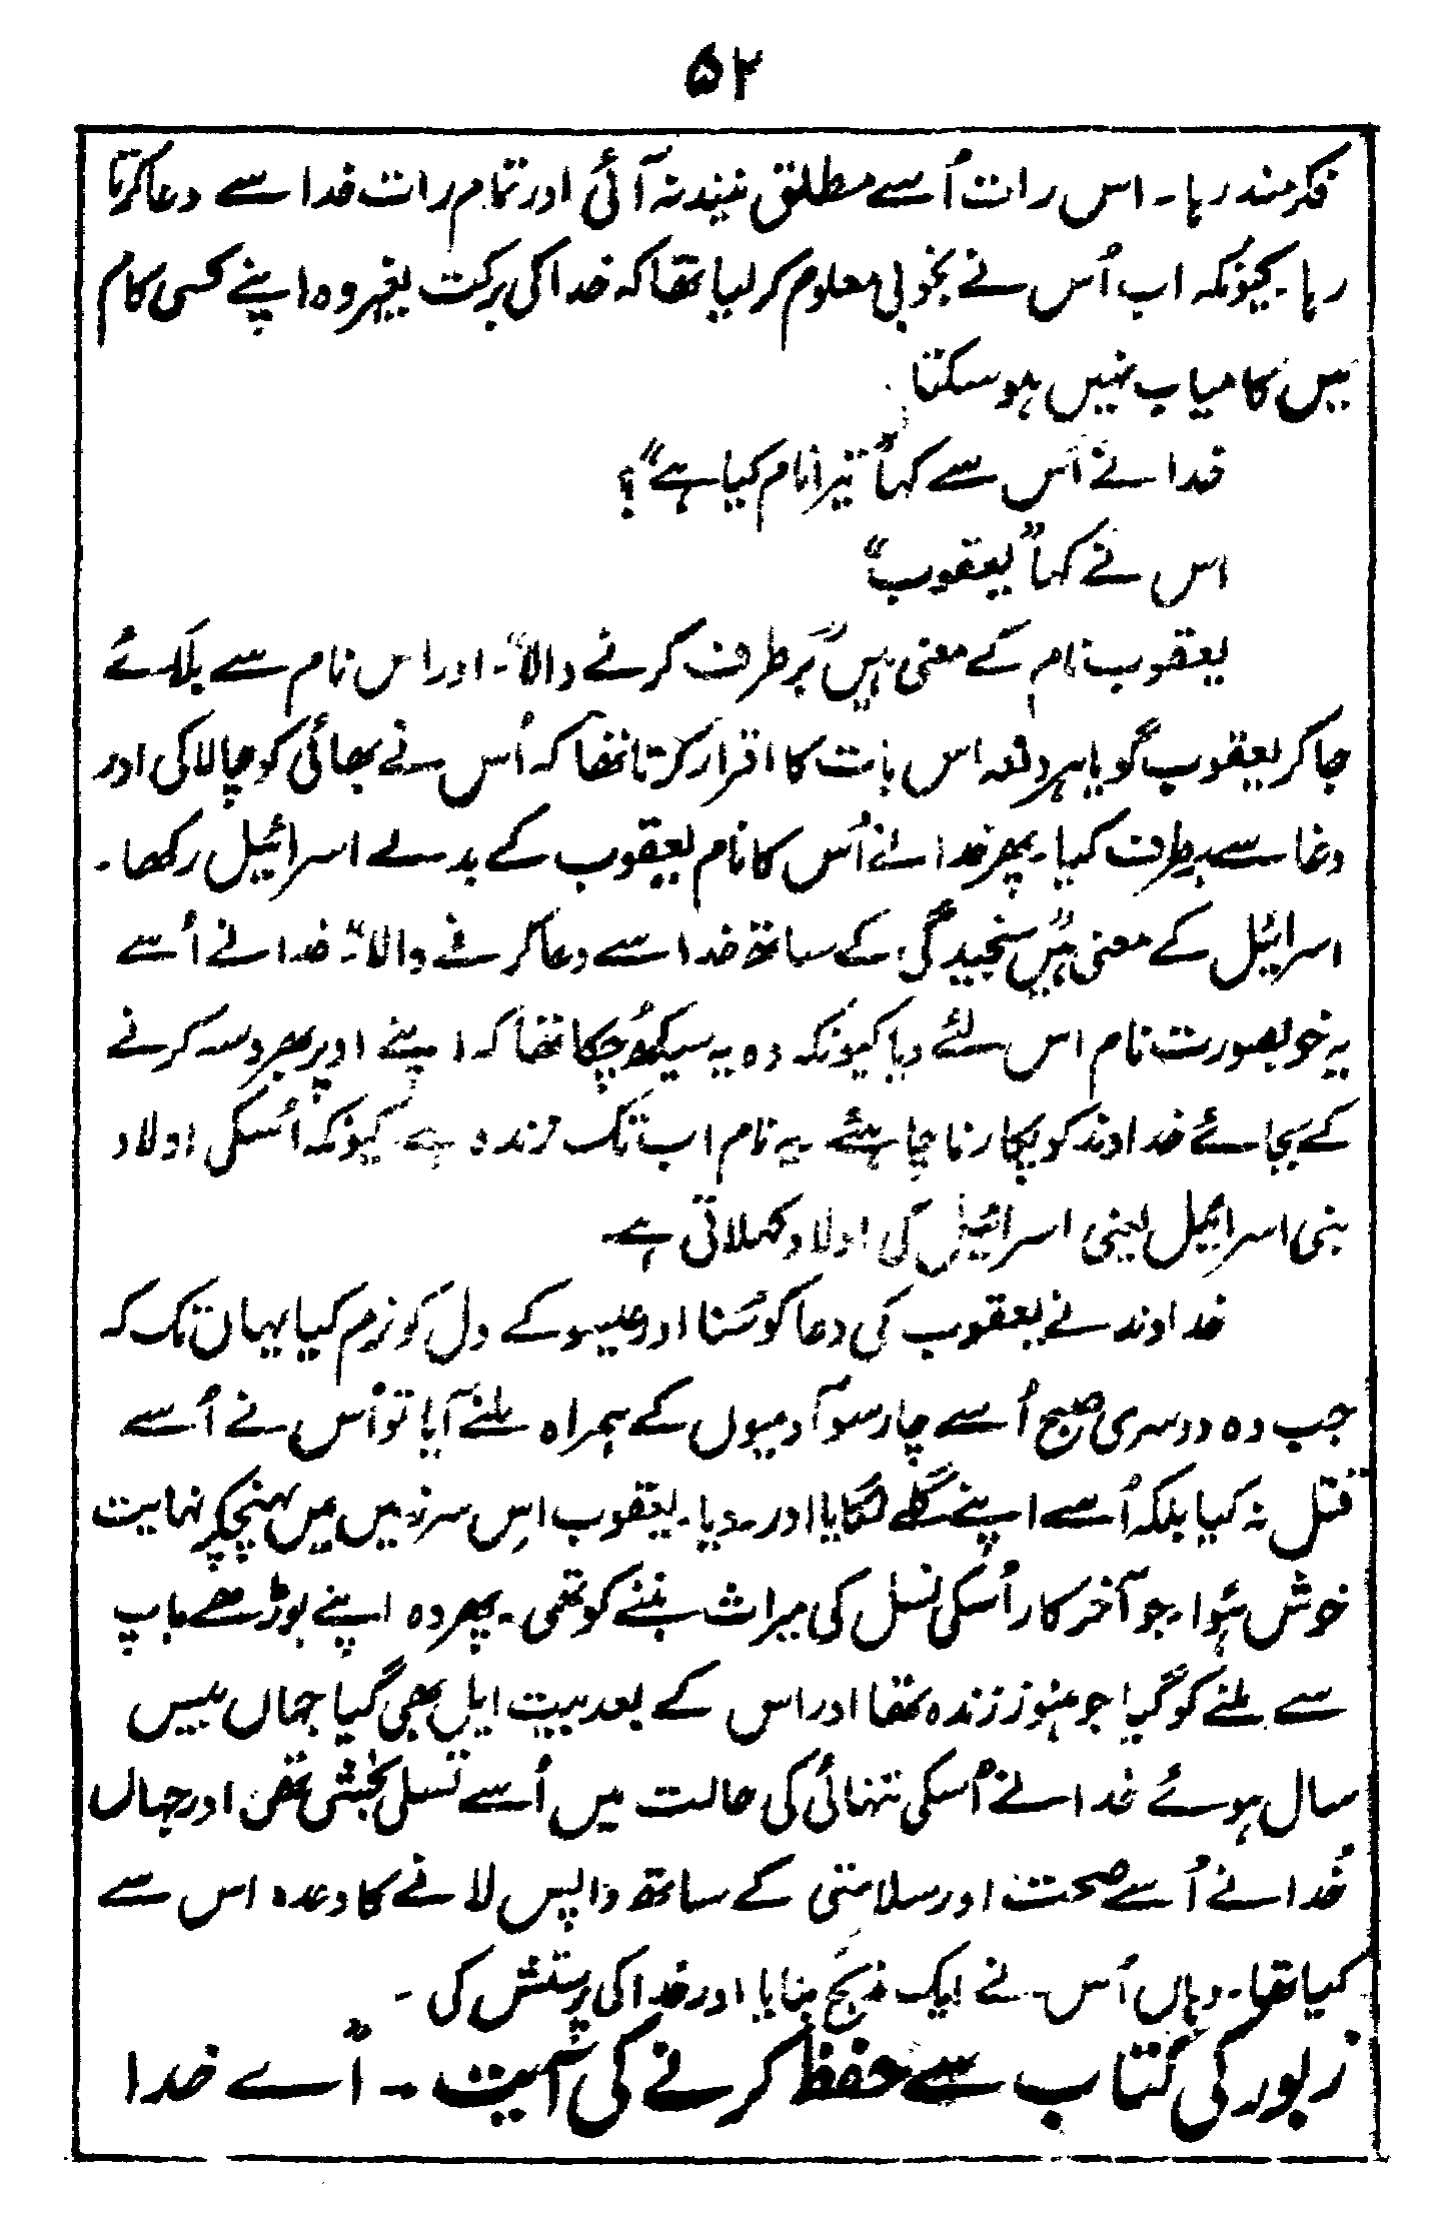 ۵۲
فکرمند رہا۔ اس رات اُسے مطلق نیند نہ آئی اور تمام رات خدا سے دعا کرتا
رہا۔ کیونکہ اب اُس نے بخوبی معلوم کر لیا تھا کہ خدا کی برکت بغیر وہ اپنے کسی کام
میں کامیاب نہیں ہو سکتا
خدا نے اُس سے کہا "تیرا نام کیا ہے"؟
اس نے کہا "یعقوب"
یعقوب نام کے معنی ہیں "برطرف کرنے والا"۔ اور اس نام سے بلائے
جا کر یعقوب گویا ہر دفعہ اس بات کا اقرار کرتا تھا کہ اُس نے بھائی کو چالاکی اور
دغا سے برطرف کیا۔ پھر خدا نے اُس کا نام یعقوب کے بدلے اسرائیل رکھا۔
اسرائیل کے معنی ہیں "سنجیدگی کے ساتھ خدا سے دعا کرنے والا"۔ خدا نے اُسے
یہ خوبصورت نام اس لئے دیا کیونکہ وہ یہ سیکھ چُکا تھا کہ اپنے اوپر بھروسہ کرنے
کے بجائے خداوند کو پکارنا چاہئے یہ نام اب تک زندہ ہے۔ کیونکہ اُسکی اولاد
بنی اسرائیل یعنی اسرائیل کی اولاد کہلاتی ہے۔
خداوند نے یعقوب کی دعا کو سُنا اور عیسو کے دل کو نرم کیا یہاں تک کہ
جب وہ دوسری صبح اُسے چار سو آدمیوں کے ہمراہ ملنے آیا تو اُس نے اُسے
قتل نہ کیا بلکہ اُسے اپنے گلے لگایا اور رو دیا۔ یعقوب اِس سرزمین میں پہنچکر نہایت
خوش ہُوا۔ جو آخرکار اُسکی نسل کی میراث بننے کو تھی۔ پھر وہ اپنے بوڑھے باپ
سے ملنے کو گیا جو ہنوز زندہ تھا اور اس کے بعد بیت ایل بھی گیا جہاں بیس
سال ہوئے خدا نے اُسکی تنہائی کی حالت میں اُسے تسلی بخشی تھی اور جہاں
خُدا نے اُسے صحت اور سلامتی کے ساتھ واپس لانے کا وعدہ اس سے
کیا تھا۔ وہاں اُس نے ایک مذبح بنایا اور خدا کی پرستش کی۔
زبور کی کتاب سے حفظ کرنے کی آیت۔ "اَے خدا